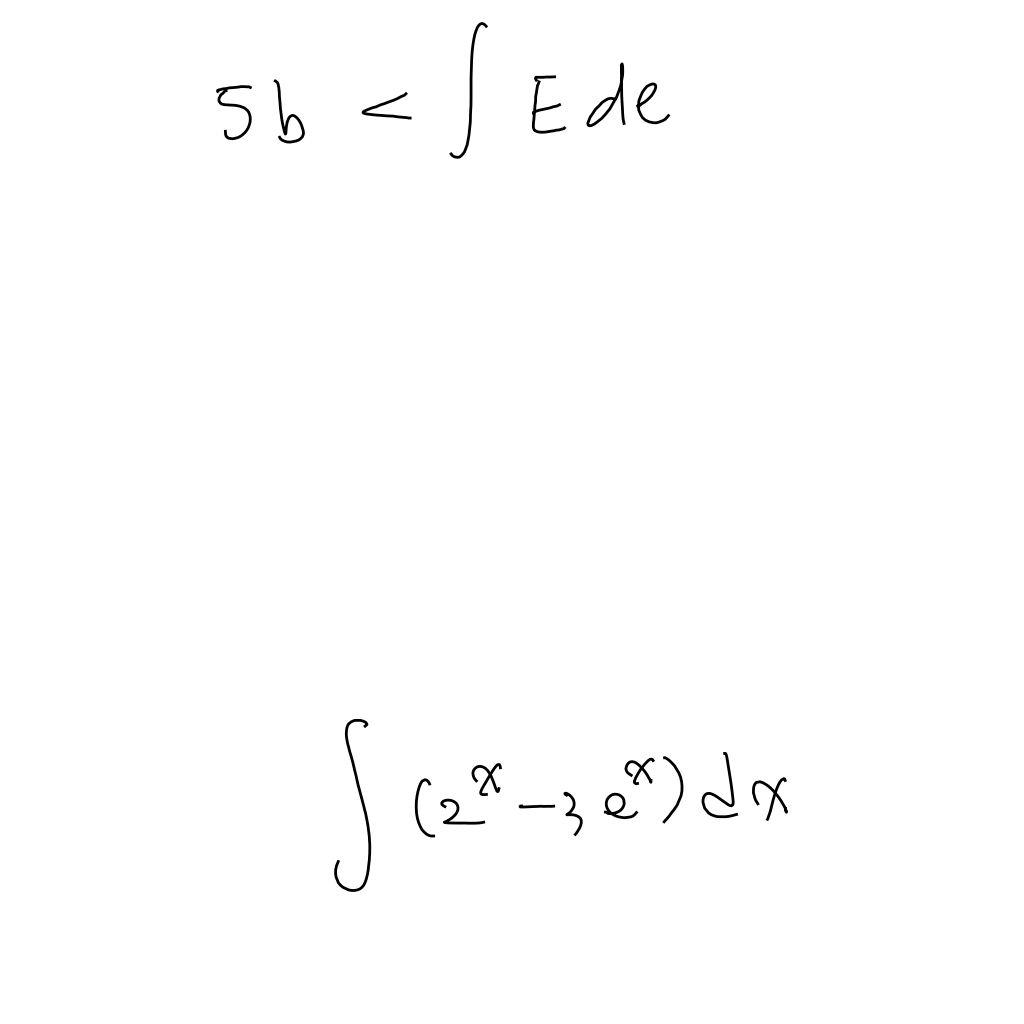 5b < ∫ E de
∫ (2^x - 3e^x) dx